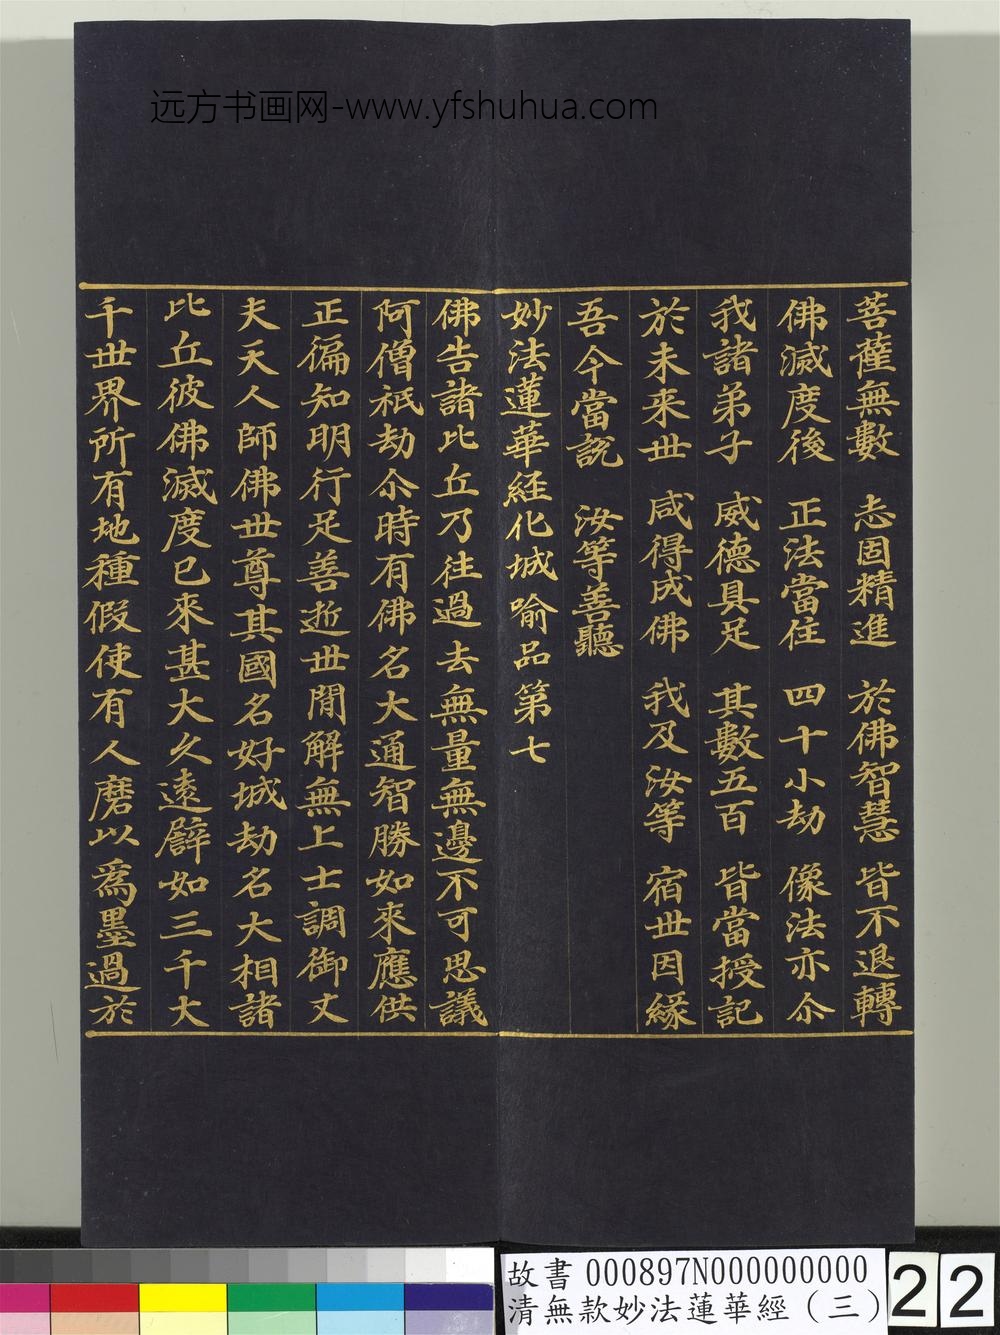 远方书画网-www.yfshuhua.com
菩薩無數　志固精進　於佛智慧　皆不退轉
佛滅度後　正法當住　四十小劫　像法亦尒
我諸弟子　威德具足　其數五百　皆當授記
於未来世　咸得成佛　我及汝等　宿世因緣
吾今當説　汝等善聽
妙法蓮華經化城喻品第七
佛告諸比丘乃往過去無量無邊不可思議
阿僧祇劫尒時有佛名大通智勝如來應供
正徧知明行足善逝世間解無上士調御丈
夫天人師佛世尊其國名好城劫名大相諸
比丘彼佛滅度已來甚大久遠譬如三千大
千世界所有地種假使有人磨以爲墨過於
故書 000897N000000000
清無款妙法蓮華經（三）
22